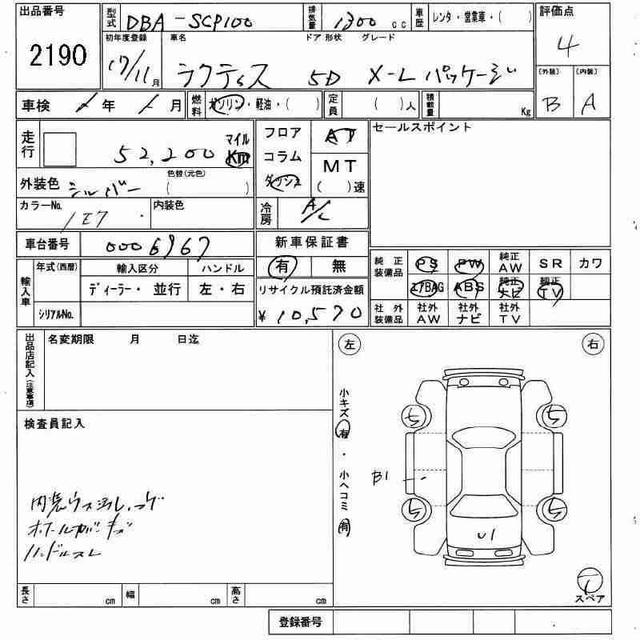 出品番号 型式 DBA-SCP100 排気量 1300 cc 車歴 レンタ・営業車・( ) 評価点
2190 初年度登録 車名 ドア 形状 グレード 4
17/11月 ラクティス 5D X-Lパッケージ (外装) (内装)
車検 年 月 燃料 ガソリン・軽油・( ) 定員 ( )人 積載量 Kg B A
走行 52,200 マイル Km フロア AT セールスポイント
コラム MT
外装色 シルバー 色替(元色) ( ) ダウンス ( )速
カラーNo. 1E7 内装色 冷房 A/C
車台番号 0006967 新車保証書
輸入車 年式(西暦) 輸入区分 ハンドル 有 無 純正装備品 PS PW 純正AW SR カワ
ディーラー・並行 左・右 リサイクル預託済金額 エアBAG ABS 純正ナビ TV
シリアルNo. ¥10,570 社外装備品 社外AW 社外ナビ 社外TV
出品店記入(注意事項) 名変期限 月 日迄 左 右
検査員記入 小キズ 有・小ヘコミ 有
B1
U1
ハンドルスレ
長さ cm 幅 cm 高さ cm スペア
登録番号